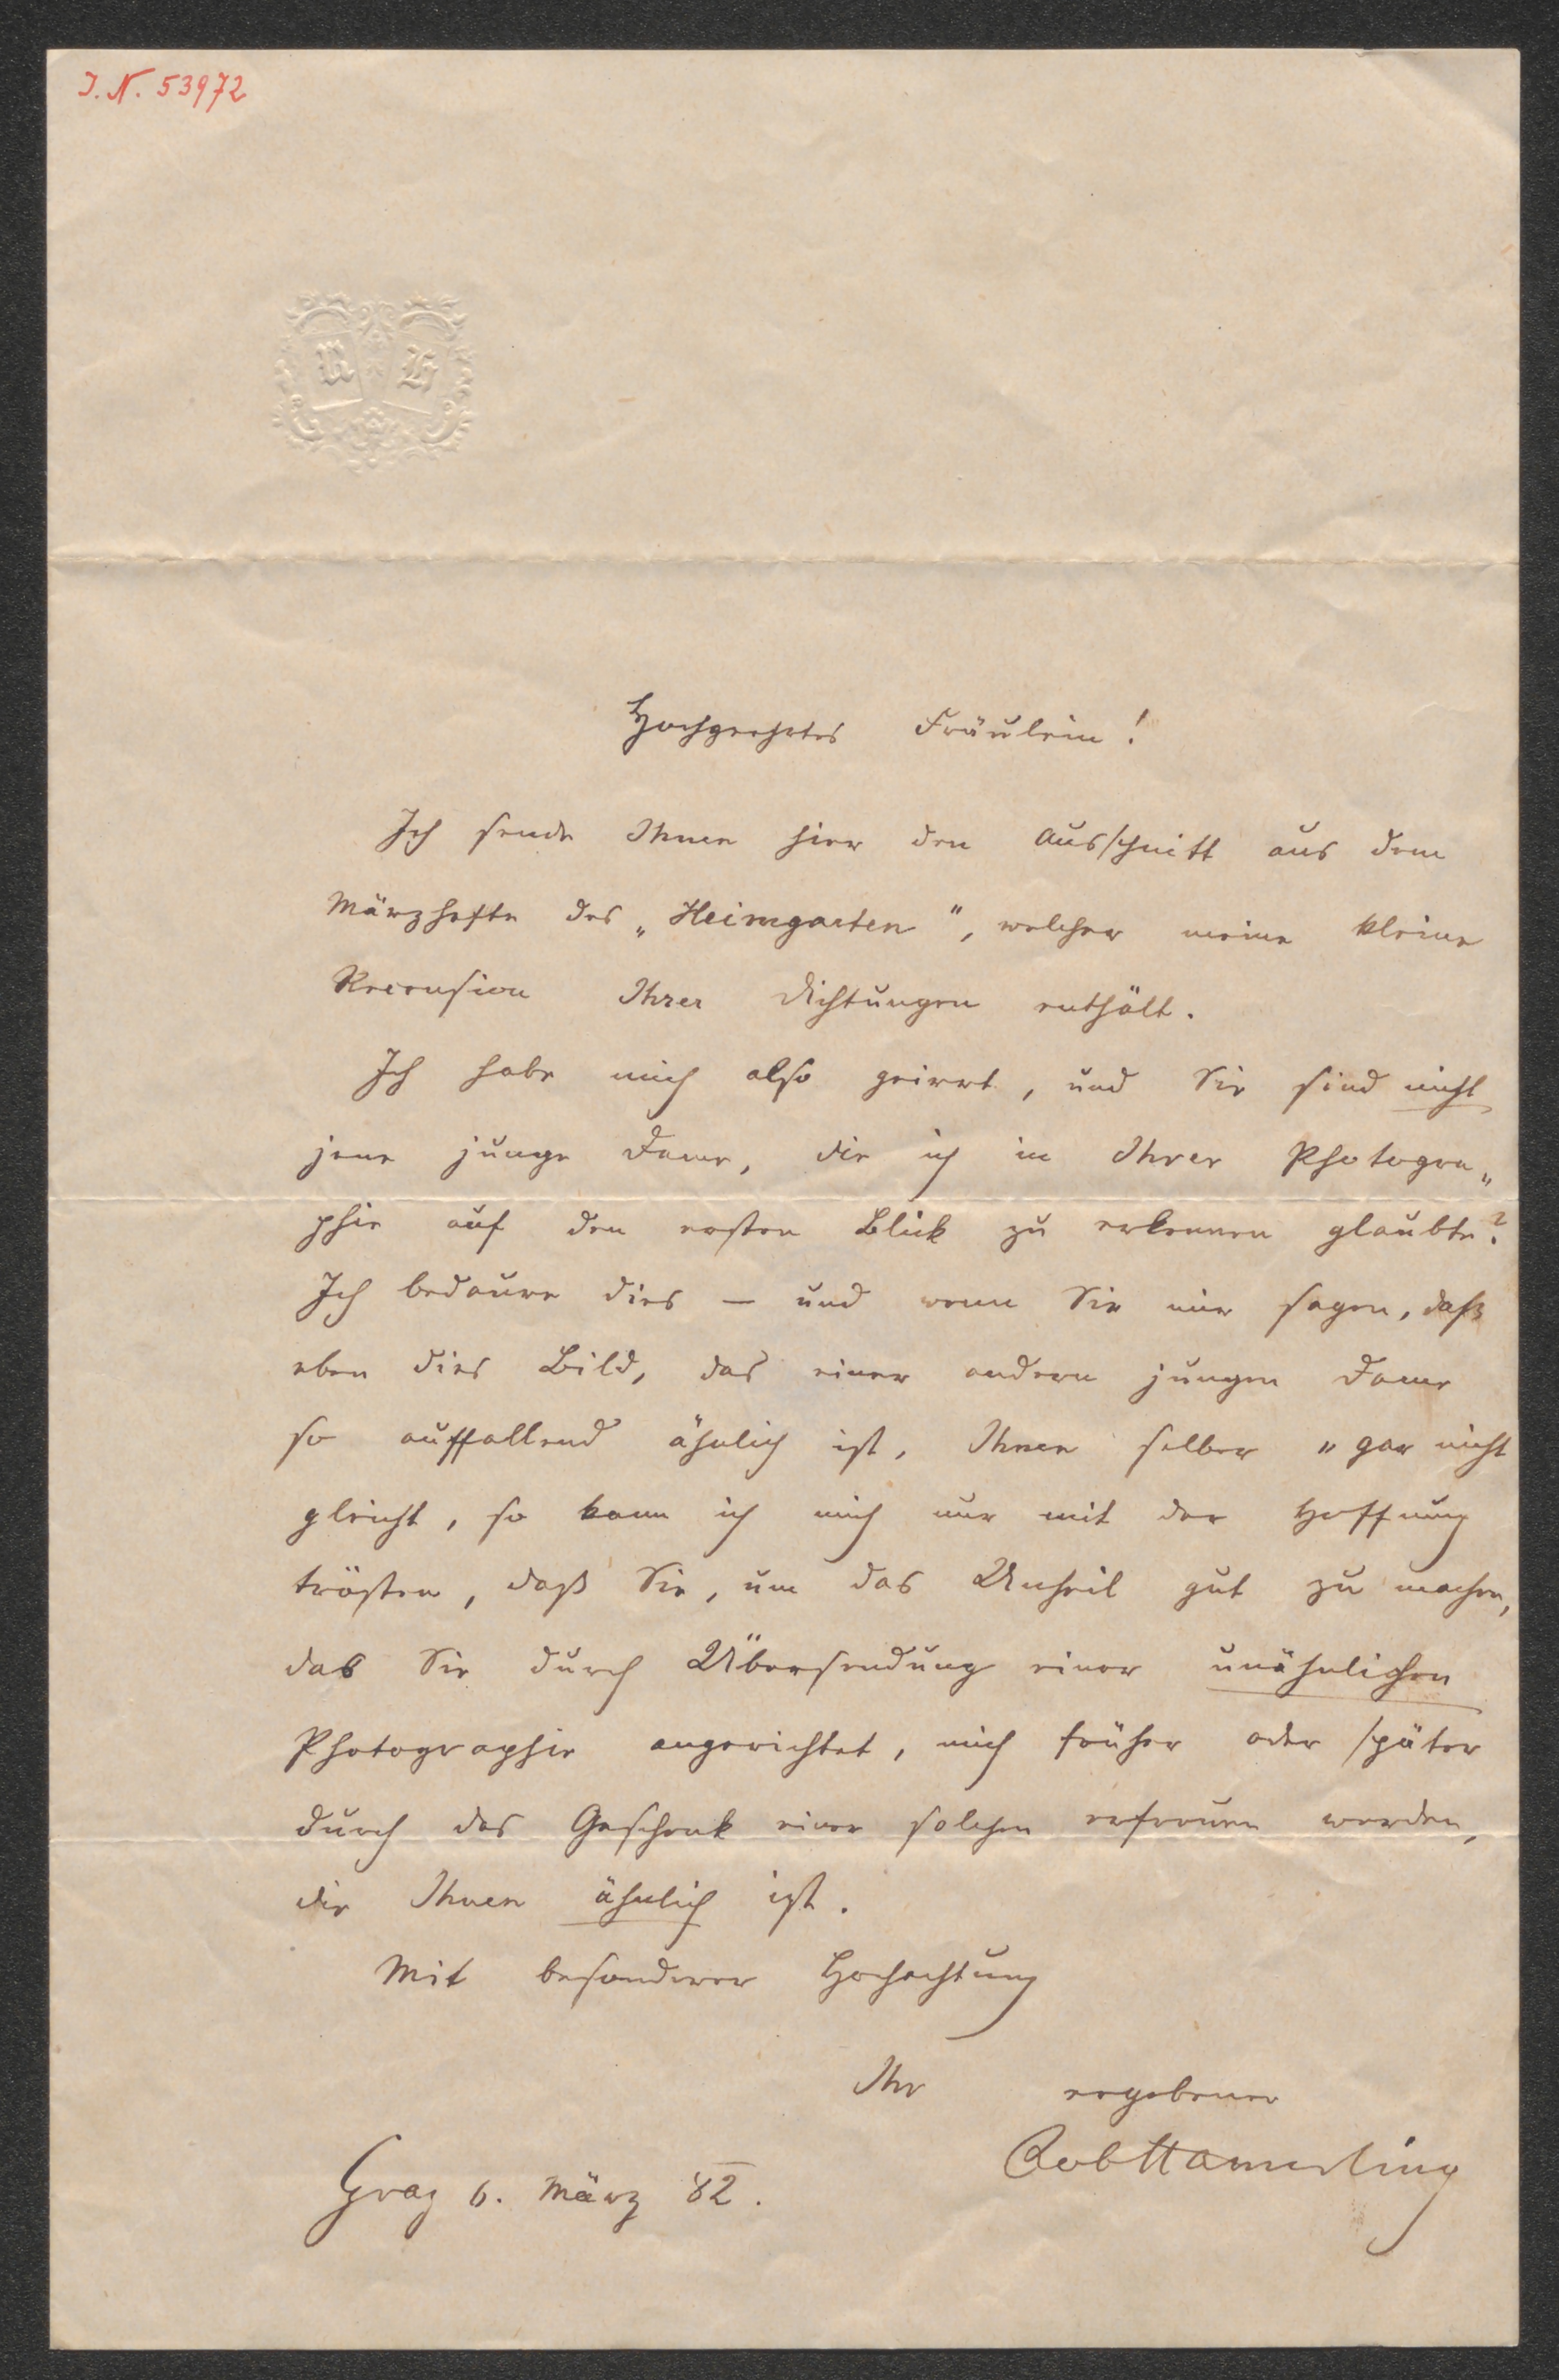 I. N. 53972
R H
Hochgeehrtes Fräulein!
Ich sende Ihnen hier den Ausschnitt aus dem
Märzhefte des „Heimgarten", welcher meine kleine
Recension Ihrer Dichtungen enthält.
Ich habe mich also geirrt, und Sie sind nicht
jene junge Dame, die ich in Ihrer Photogra„
phie auf den ersten Blick zu erkennen glaubte?
Ich bedaure dies – und wenn Sie mir sagen, daß
eben dies Bild, das einer andern jungen Dame
so auffallend ähnlich ist, Ihnen selber „gar nicht
gleicht, so kann ich mich nur mit der Hoffnung
trösten, daß Sie, um das Unheil gut zu machen,
das Sie durch Übersendung einer unähnlichen
Photographie angerichtet, mich früher oder später
durch das Geschenk einer solchen erfreuen werden,
die Ihnen ähnlich ist.
Mit besonderer Hochachtung
Ihr ergebener
RobHamerling
Graz 6. März 82.